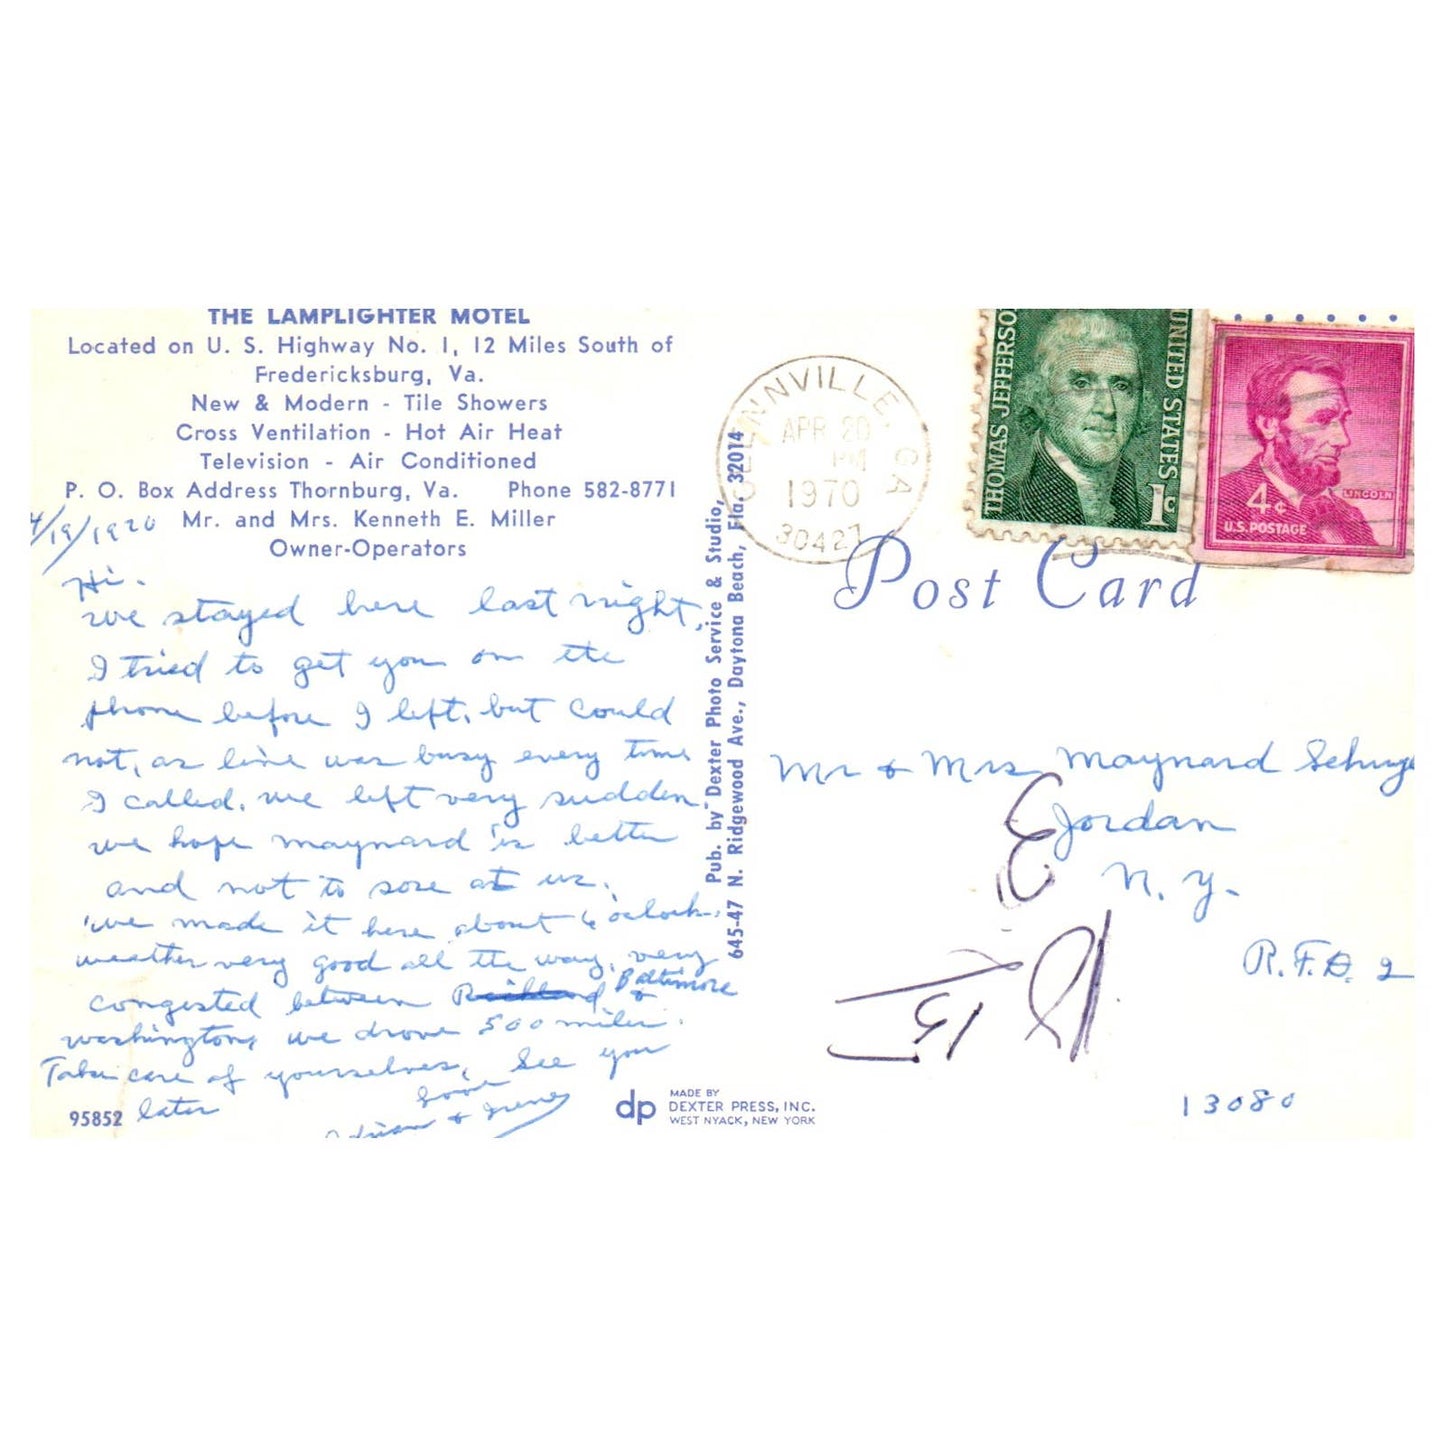 THE LAMPLIGHTER MOTEL
Located on U. S. Highway No. 1, 12 Miles South of
Fredericksburg, Va.
New & Modern - Tile Showers
Cross Ventilation - Hot Air Heat
Television - Air Conditioned
P. O. Box Address Thornburg, Va. Phone 582-8771
Mr. and Mrs. Kenneth E. Miller
Owner-Operators
4/19/1970
Hi.
we stayed here last night,
I tried to get you on the
phone before I left, but could
not, as line was busy every time
I called. we left very sudden.
we hope maynard is better
and not to sore at us.
we made it here about 6 o'clock.
weather very good all the way, very
congested between Baltimore &
washington, we drove 500 miles.
Take care of yourselves, See you
later
Love
Adrian & Irene
95852
Pub. by Dexter Photo Service & Studio,
645-47 N. Ridgewood Ave., Daytona Beach, Fla. 32014
dp
MADE BY
DEXTER PRESS, INC.
WEST NYACK, NEW YORK
GLENNVILLE, GA
APR 20
PM
1970
30427
THOMAS JEFFERSO
UNITED STATES
1c
LINCOLN
4c
U.S. POSTAGE
Post Card
Mr & Mrs Maynard
Jordan
N. Y.
R.F.D. 2
13080